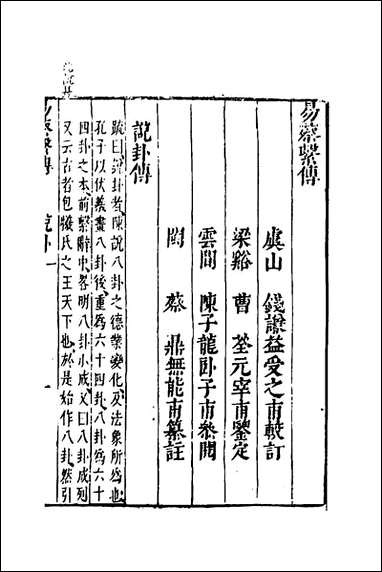 易蔡繫傳
虞山 錢謙益受之甫較訂
梁谿 曹 荃元宰甫鑒定
雲間 陳子龍臥子甫參閱
閩 蔡 鼎無能甫纂註
說卦傳
疏曰說卦者陳說八卦之德業變化及法象所為也
孔子以伏羲畫八卦後重為六十四卦八卦為六十
四卦之本前繫辭中畧明八卦小成又曰八卦成列
又云古者包犧氏之王天下也於是始作八卦然引
說卦 一